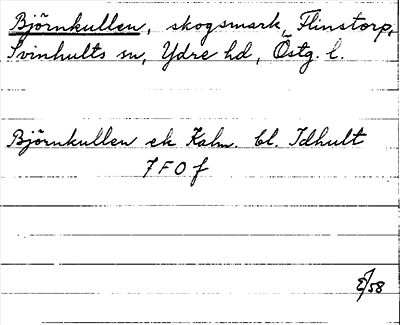 Björnkullen, skogsmark, Flinstorp,
Svinhults sn, Ydre hd, Östg. l.
Björnkullen ek Kalm. bl. Idhult
7F0f